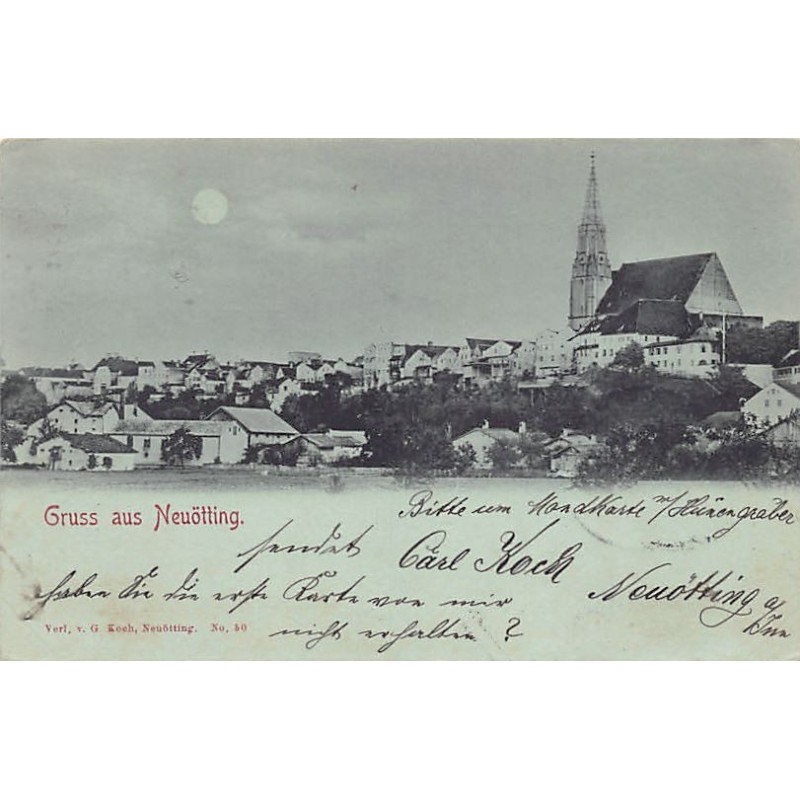 Gruss aus Neuötting.
Bitte um Mondkarte m/Hünengräber
sendet Carl Koch
Neuötting a/Inn
haben Sie die erste Karte von mir
nicht erhalten?
Verl, v. G. Koch, Neuötting. No, 50